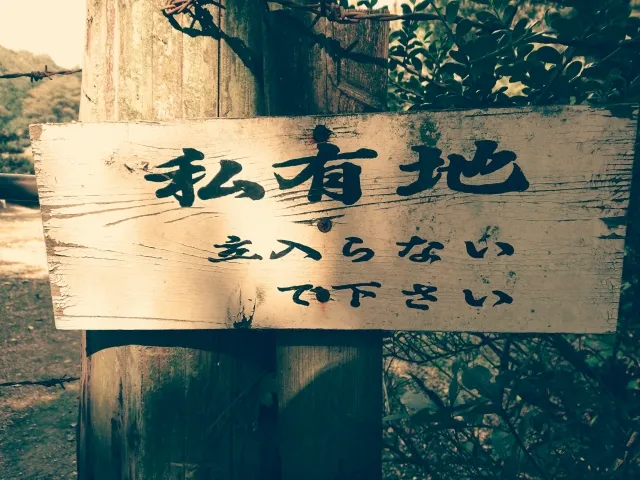 私有地
立入らない
で下さい